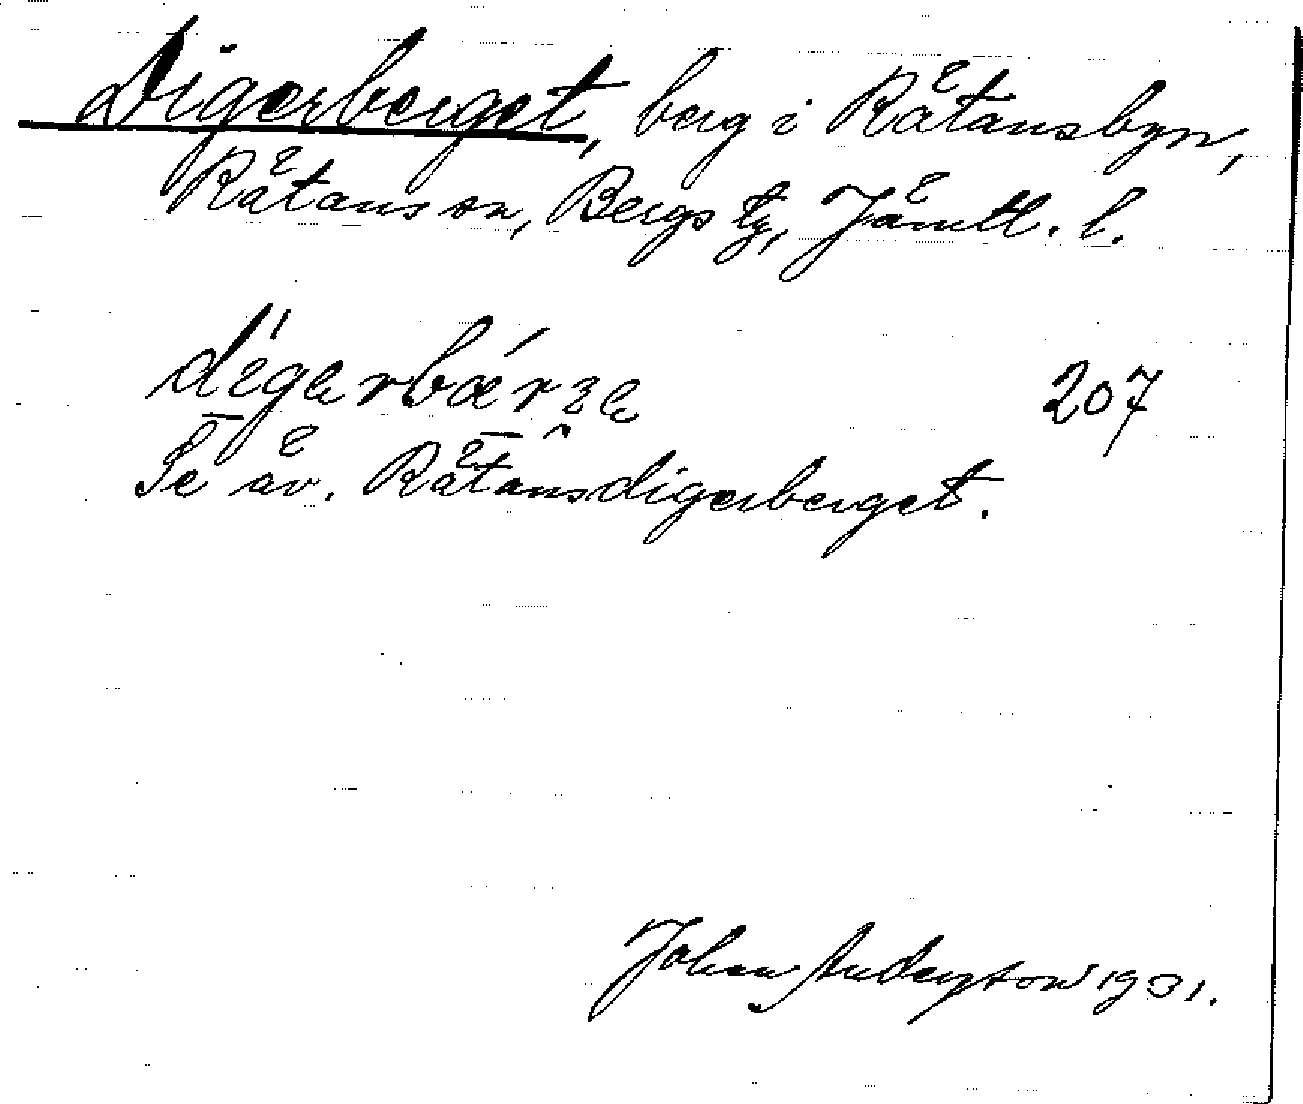 Digerberget, berg i Rätansbyn,
Rätans sn, Bergs tg, Jämtl. l.
207
Se äv. Rätansdigerberget.
Johan Anderson 1931.